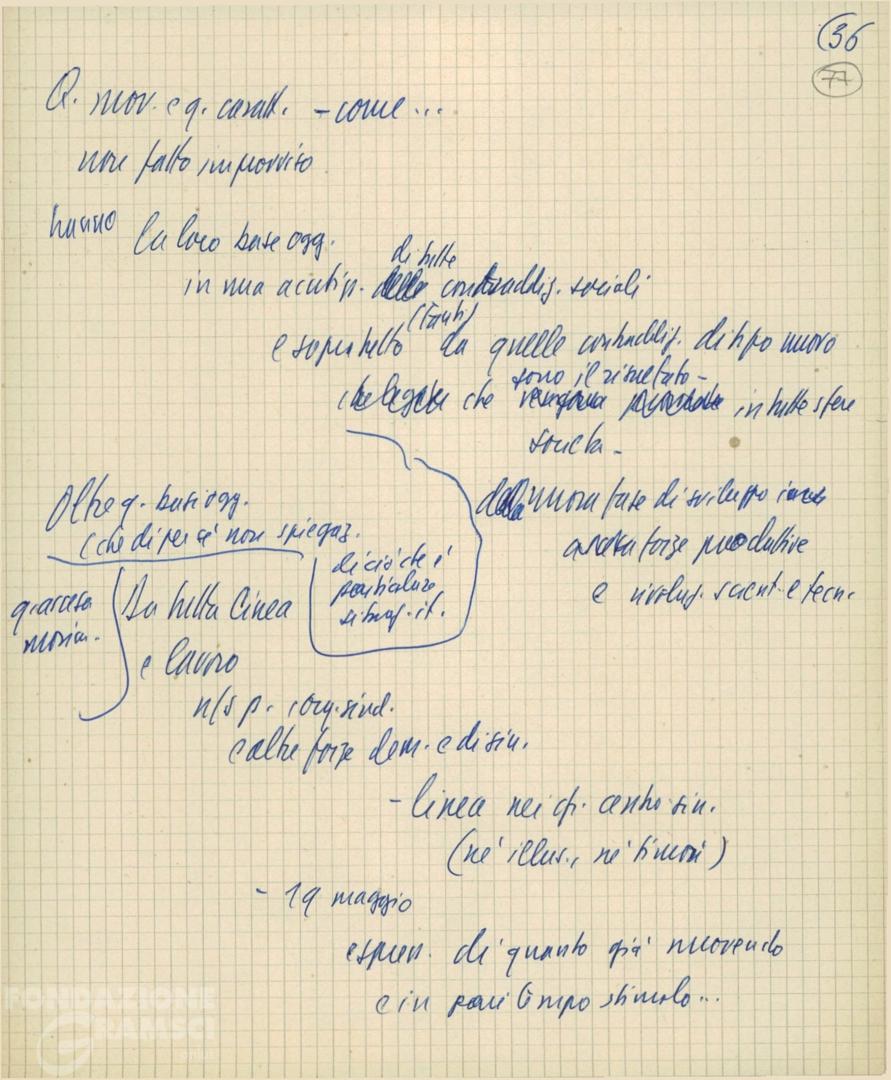 36
77
Q. mov. e q. caratt. - come...
non fatto improvviso
hanno la loro base ogg.
di tutte
in una acutizz. delle contraddiz. sociali
(tanti)
e soprattutto da quelle contraddiz. di tipo nuovo
sono il risultato -
che vengono in tutte sfere
società -
dalla nuova fase di sviluppo
forze produttive
e rivoluz. scient. e tecn.
Oltre q. basi ogg.
(che di per sé non spiegaz.
di ciò che è
particolare
situaz. it.
q. ascesa
Da tutta linea
e lavoro
n/s p. iorg. sind.
e altre forze dem. e di sin.
- linea nei cfr. centro sin.
(né illus., né timori)
- 19 maggio
espress. di quanto già muovendo
e in pari tempo stimolo...
FONDAZIONE
GRAMSCI